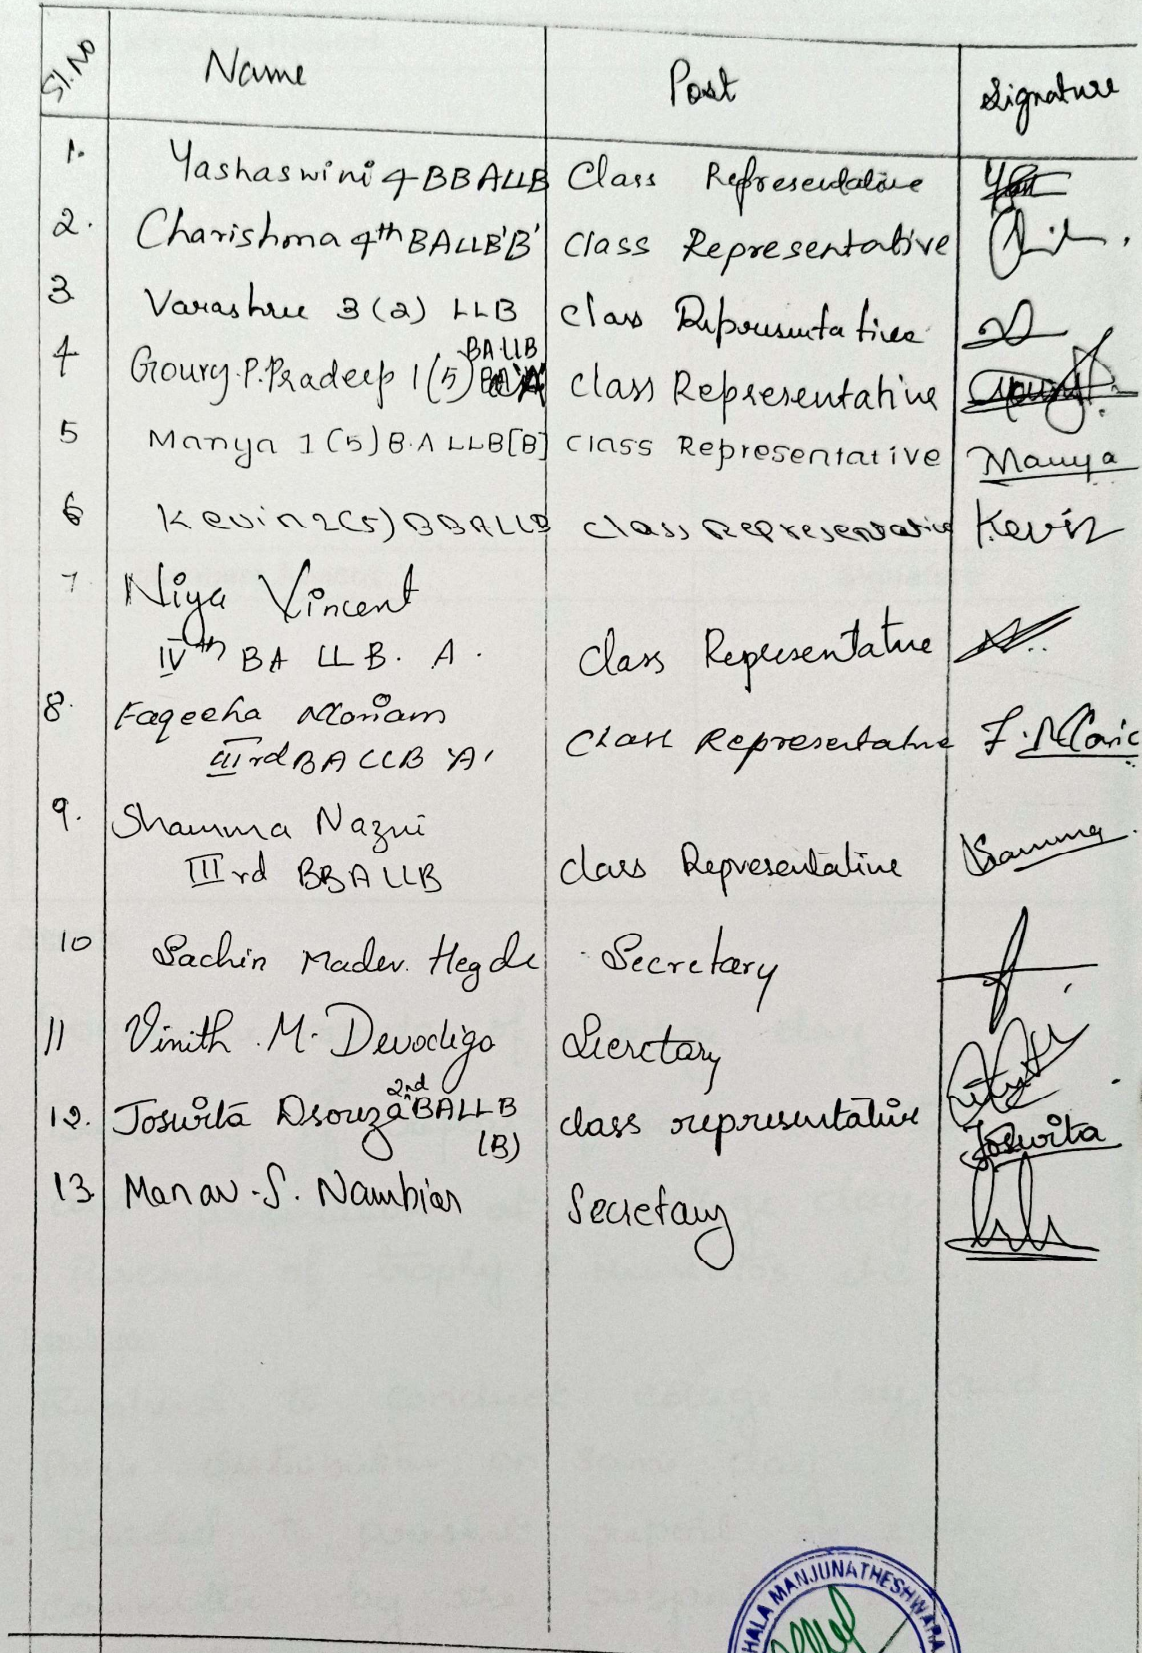 Sl. No Name Post Signature
1. Yashaswini 4 BBALLB Class Representative
2. Charishma 4th BALLB'B' Class Representative
3 Varashree 3 (2) LLB Class Representative
BA LLB
4 Goury.P.Pradeep 1(5) Class Representative
5 Manya 1(5) B.A LLB[B] Class Representative Manya
6 Kevin 2(5) BBALLB Class Representative Kevin
7 Niya Vincent
IVth BA LLB. A. Class Representative
8. Faqeeha Mariam
IIIrd BA LLB 'A' Class Representative
9. Shamma Nazni
IIIrd BBA LLB Class Representative Shamma
10 Sachin Madev. Hegde Secretary
11 Vinith .M. Devadiga Secretary
2nd
12. Joswita Dsouza BALLB class representative Joswita
(B)
13. Manav .S. Nambiar Secretary
MANJUNATHESHWARA